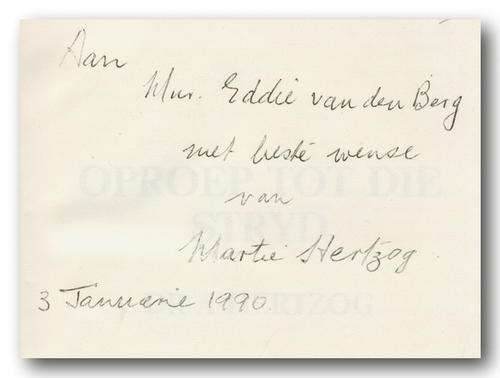 Aan
Mnr. Eddie van den Berg
met beste wense
van
Martie Hertzog
3 Januarie 1990.
OPROEP TOT DIE
STRYD
HERTZOG